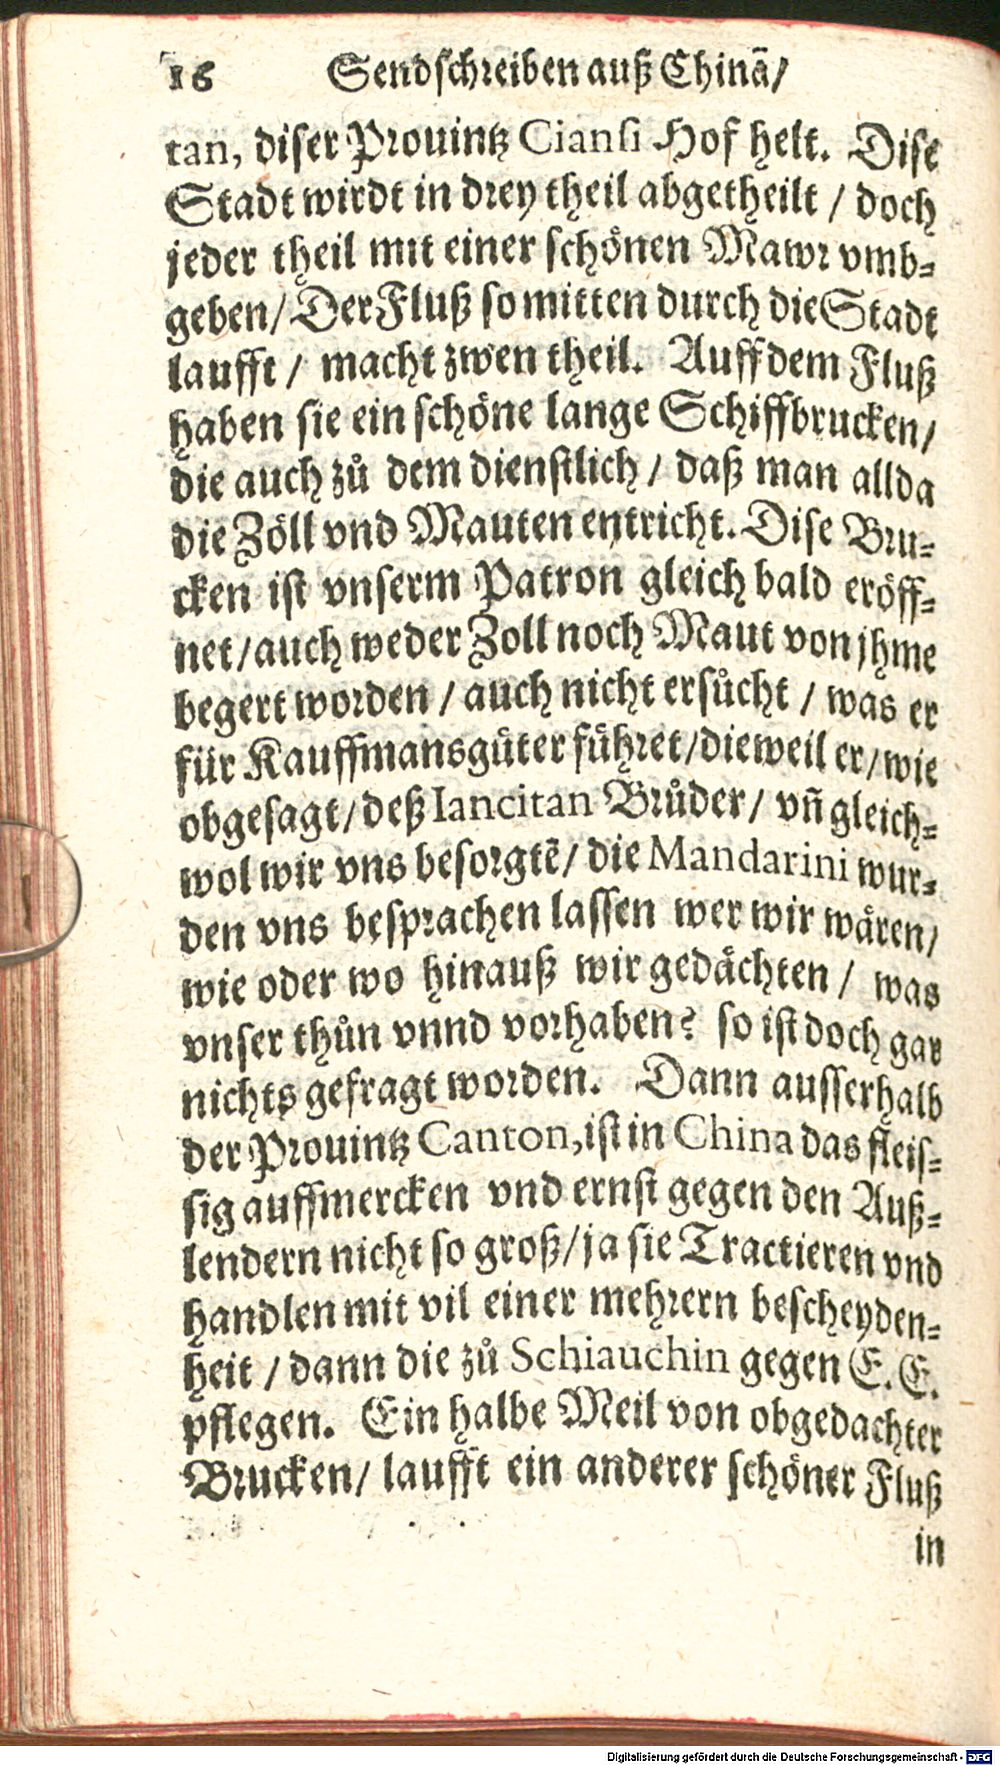 16 Sendschreiben auß Chinā/
tan, diser Prouintz Ciansi Hof helt. Dise
Stadt wirdt in drey theil abgetheilt / doch
jeder theil mit einer schönen Mawr vmb-
geben/ Der Fluß so mitten durch die Stadt
laufft / macht zwen theil. Auff dem Fluß
haben sie ein schöne lange Schiffbrucken/
die auch zů dem dienstlich / daß man allda
die Zöll vnd Mauten entricht. Dise Bru-
cken ist vnserm Patron gleich bald eröff-
net/auch weder Zoll noch Maut von jhme
begert worden / auch nicht ersůcht / was er
für Kauffmansgüter führet/dieweil er/wie
obgesagt/deß Iancitan Brůder/ vñ gleich-
wol wir vns besorgtē/ die Mandarini wur-
den vns besprachen lassen wer wir wären/
wie oder wo hinauß wir gedächten / was
vnser thůn vnnd vorhaben? so ist doch gar
nichts gefragt worden. Dann ausserhalb
der Prouintz Canton, ist in China das fleis-
sig auffmercken vnd ernst gegen den Auß-
lendern nicht so groß/ja sie Tractieren vnd
handlen mit vil einer mehrern bescheyden-
heit / dann die zů Schiauchin gegen E. E.
pflegen. Ein halbe Meil von obgedachter
Brucken/ laufft ein anderer schöner Fluß
in
Digitalisierung gefördert durch die Deutsche Forschungsgemeinschaft - DFG